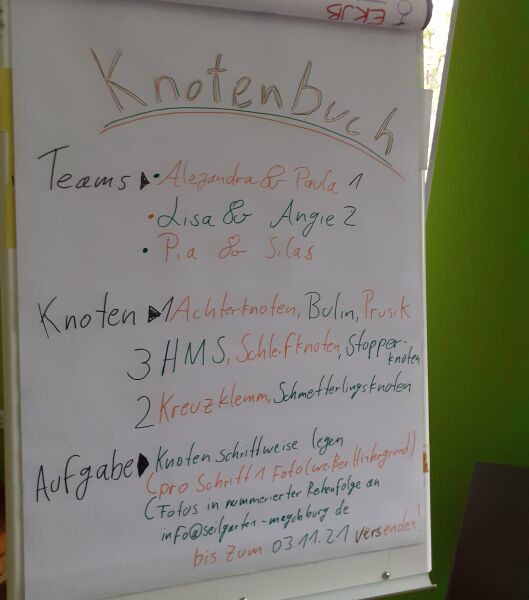 EKJB
Knotenbuch
Teams ▶ • Alejandra & Paula 1
• Lisa & Angie 2
• Pia & Silas
Knoten ▶ 1 Achterknoten, Bulin, Prusik
3 HMS, Schleifknoten, Stopper-
knoten
2 Kreuzklemm, Schmetterlingsknoten
Aufgabe ▶ Knoten schrittweise legen
(pro Schritt 1 Foto (weißer Hintergrund)
(Fotos in nummerierter Reihenfolge an
info@seilgarten-magdeburg.de
bis zum 03.11.21 versenden!